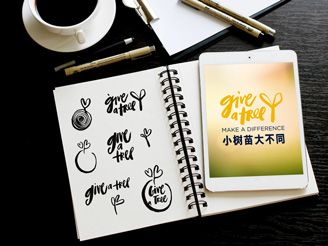 give
a tree
give
a tree
give
a tree
give a tree
give
a tree
give
a tree
MAKE A DIFFERENCE
小树苗大不同